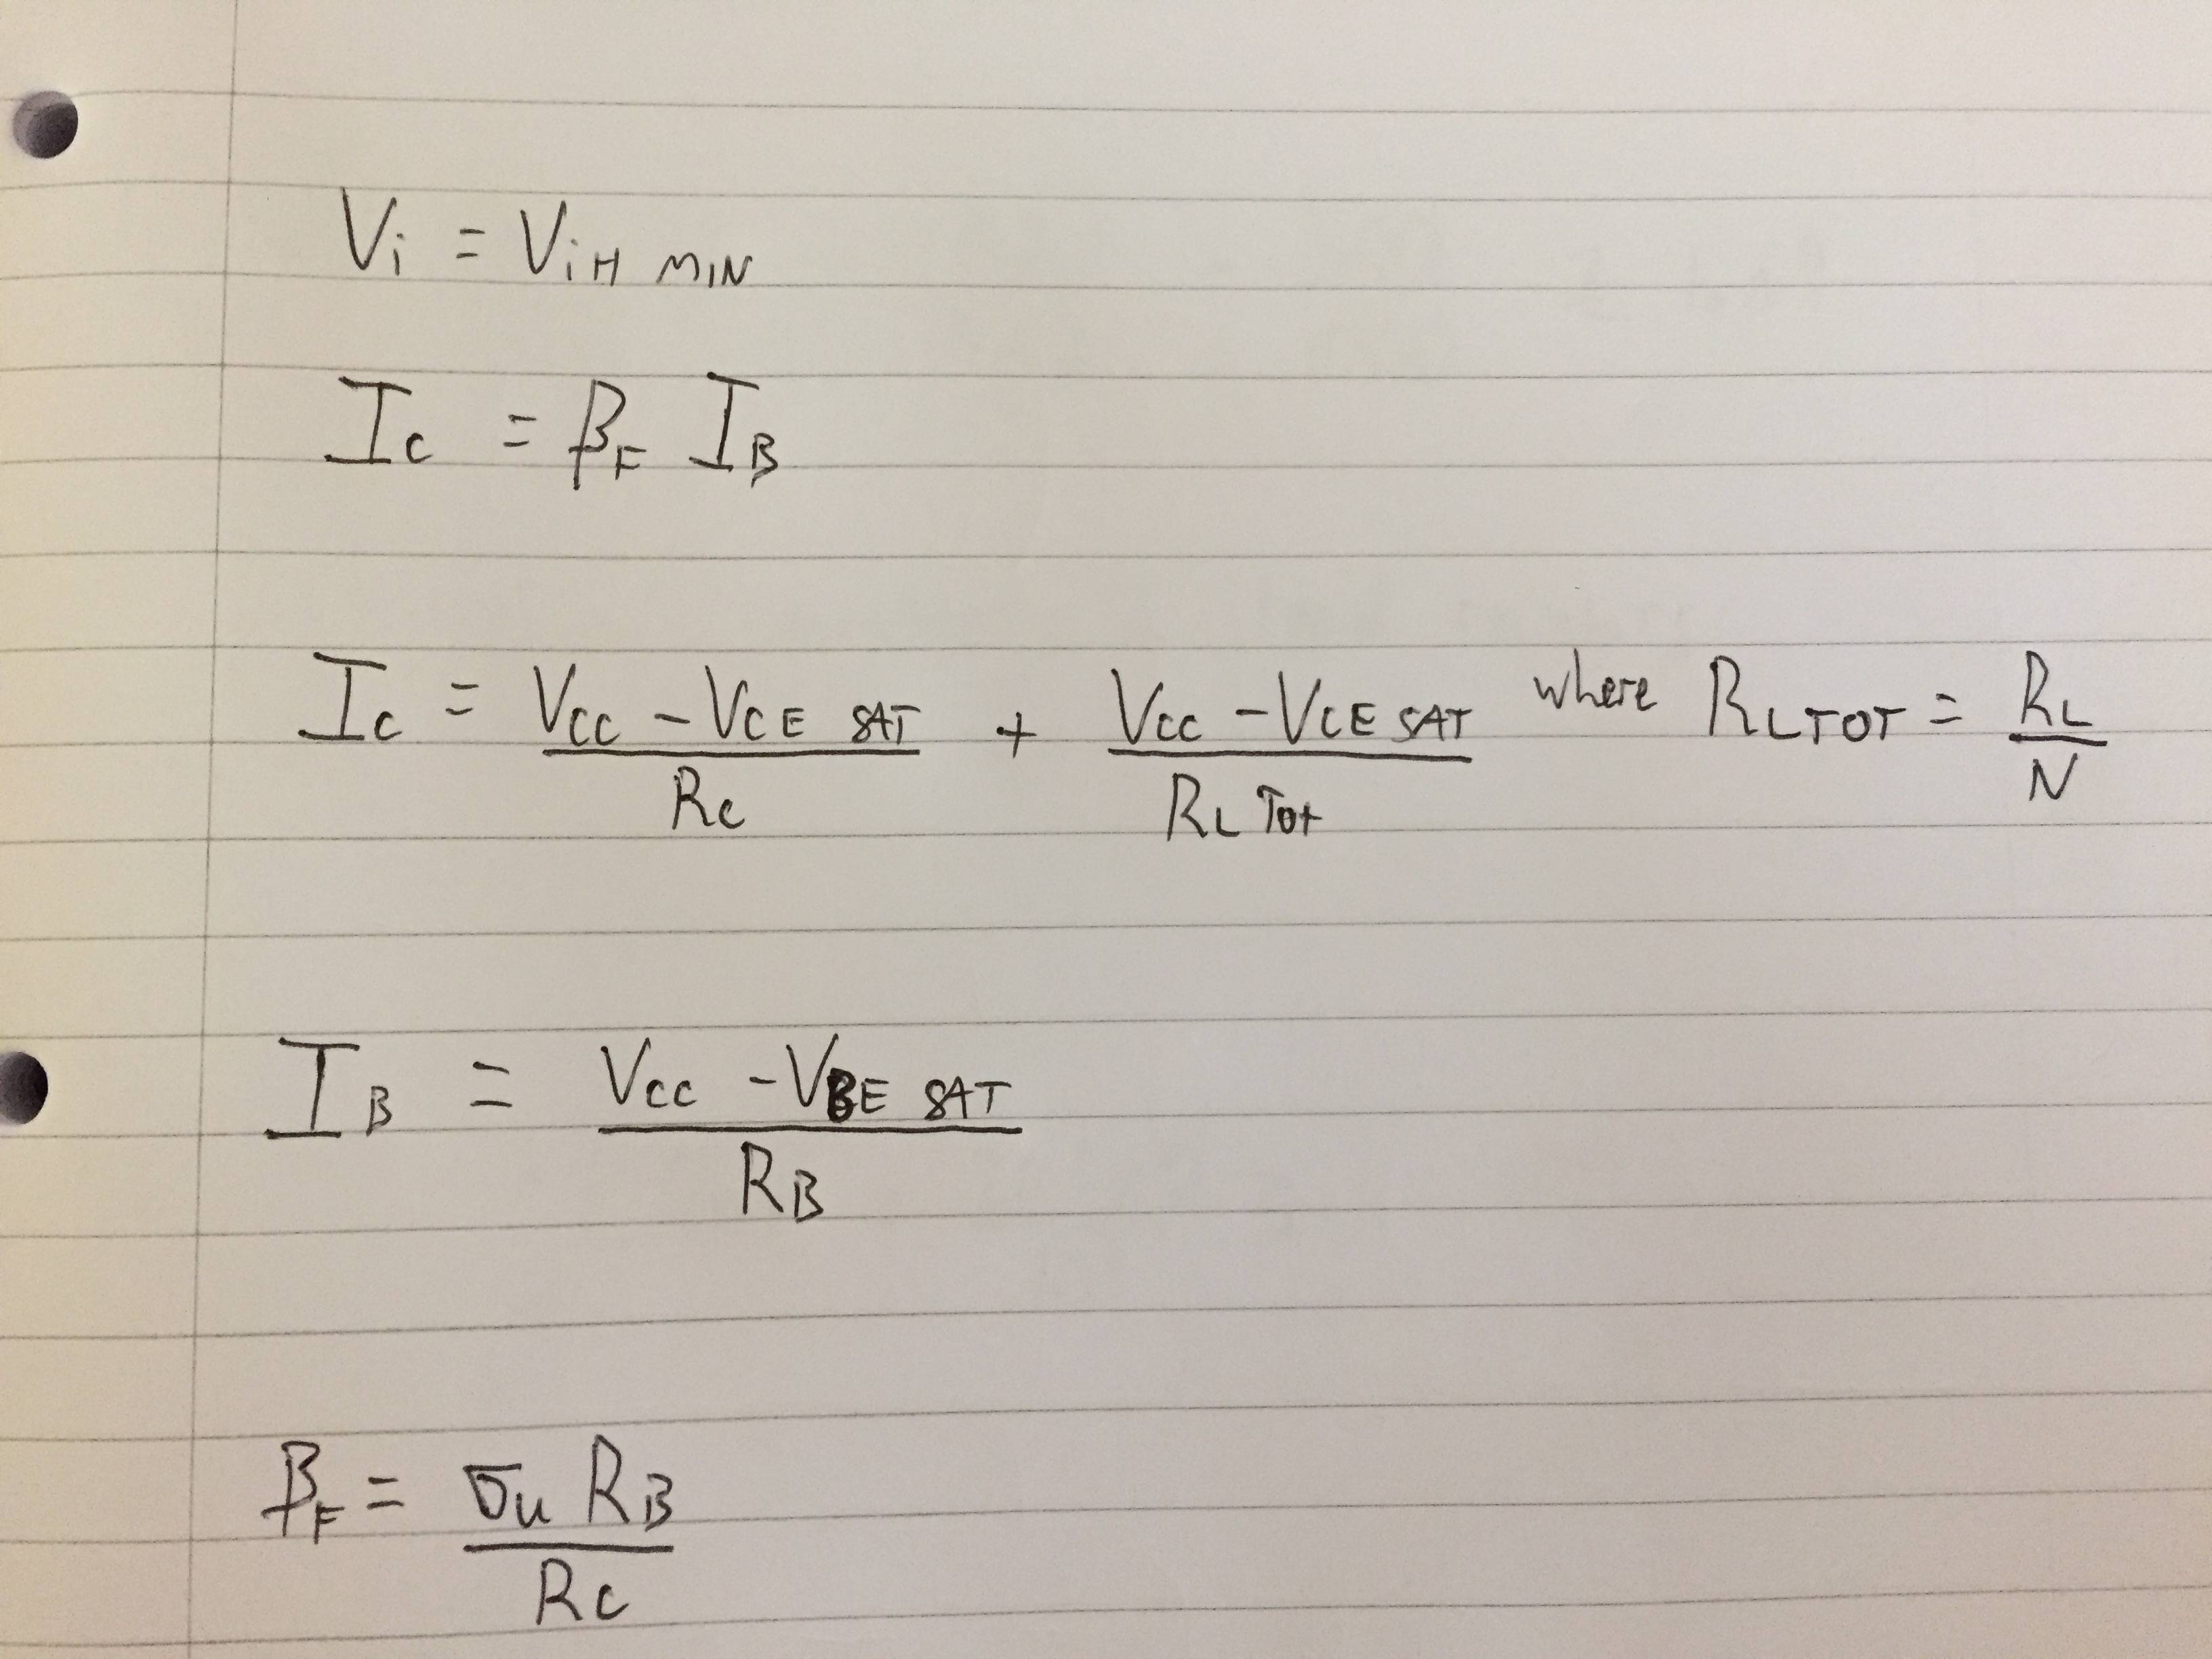 Vi = ViH MIN
IC = βF IB
IC = (VCC - VCE SAT)/RC + (VCC - VCE SAT)/(RL Tot) where RLTOT = RL/N
IB = (VCC - VBE SAT)/RB
βF = (σu RB)/RC